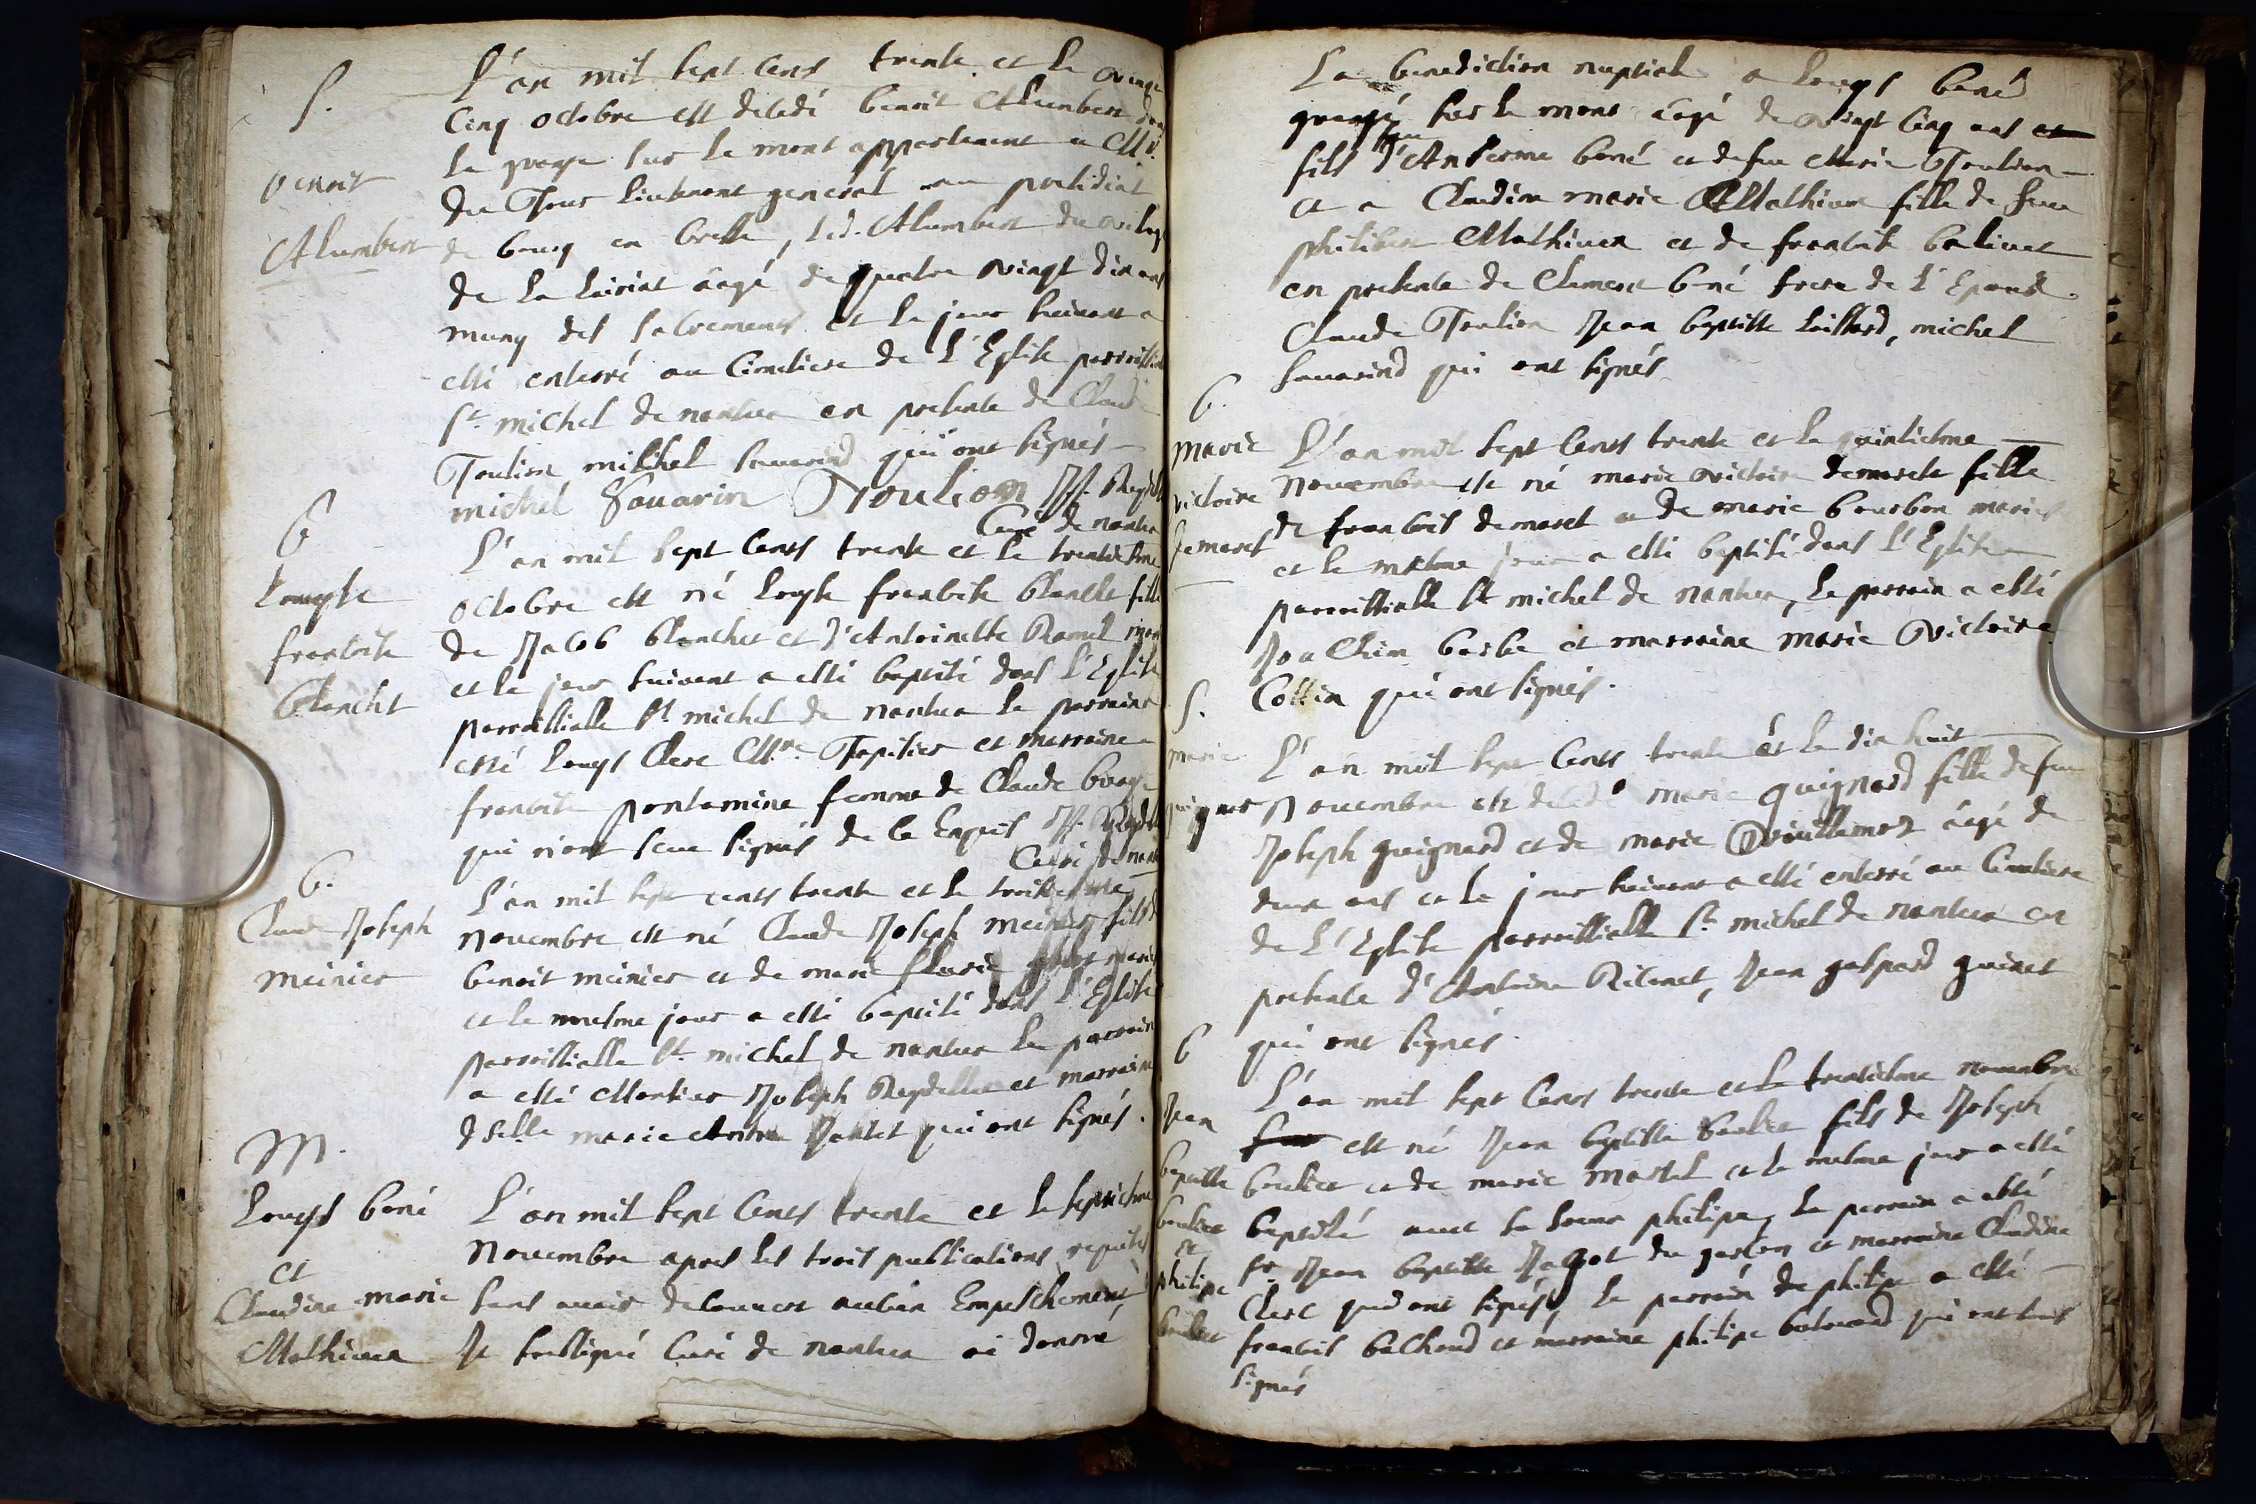 S.
benoit
Alumbert
L'an mil sept cens trente et le vingt
cinq octobre est decedé benoit Alumbert dans
la grange sur le mont appartenant a Mr.
du lieutenant general au presidial
de bourg en bresse, led. Alumbert du village
de la aagé de quatre vingt dix ans
muny des sacremens et le jour suivant a
esté enterré au Cimetiere de l'Eglise parroissialle
St. michel de nantua en presence de Claude
Toulion michel sauarind qui ont signés
michel Sauarin Touliom
Curé de nantua
B
Louyse
francoise
Blanche
L'an mil sept cens trente et le trentiesme
octobre est né Louyse francoise blanche fille
de Jacob blanchet et d'Antoinette Ramel mariés
et le jour suivant a esté baptisé dans l'Eglise
parroissialle St michel de nantua le parrain a
esté Louys Clerc Me. Tapissier et marraine
francoise pontamine femme de Claude
qui n'ont sceu signés de ce Enquis
Curé de nantua
B.
Claude Joseph
meinier
L'an mil sept cents trente et le troisiesme
novembre est né Claude Joseph meinier fils de
benoit meinier et de marie mariés
et le mesme jour a esté baptisé dans l'Eglise
parroissialle St michel de nantua le parrain
a esté Joseph Reydellet et marraine
dselle marie Jantet qui ont signés.
M.
Louys boné
et
Claudine marie
Mathieux
L'an mil sept cens trente et le septiesme
Novembre apres les trois publications requises
sans avoir decouvert aucun Empeschement,
Je soussigné Curé de nantua ai donné
La benediction nuptiale a Louys boné
granger sur le mont aagé de vingt cinq ans et
fils d'Anterme boné et de feue Marie Toulion
et a Claudine marie Mathieux fille de feu
philibert Mathieux et de francoise
en presence de Clement boné frere de l'Epoux
Claude Toulion Jean baptiste, michel
sauarind qui ont signés
B.
Marie
victoire
demaret
L'an mil sept cens trente et le quinziesme
Novembre est né marie victoire demarete fille
de francois demaret et de marie bourbon mariés
et le mesme jour a esté baptisé dans l'Eglise
parroissialle St michel de nantua, le parrain a esté
Joachim barbe et marraine marie victoire
Collin qui ont signés.
S.
marie
guignard
L'an mil sept cens trente et le dix huit
Novembre est decedé marie guignard fille de feu
Joseph guignard et de marie aagé de
deux ans et le jour suivant a esté enterré au Cimetiere
de l'Eglise parroissialle St. michel de nantua en
presence d'Antoine, Jean gaspard guinet
qui ont signés.
B
Jean
baptiste
et
philipe
L'an mil sept cens trente et le trentiesme novembre
est né Jean baptiste fils de Joseph
et de marie martel et le mesme jour a esté
baptisé avec sa soeur philipe, le parrain a esté
Sr. Jean baptiste du garçon et marraine Claudine
Clerc qui ont signés, le parrain de philipe a esté
francois et marraine philipe qui ont tous
signés